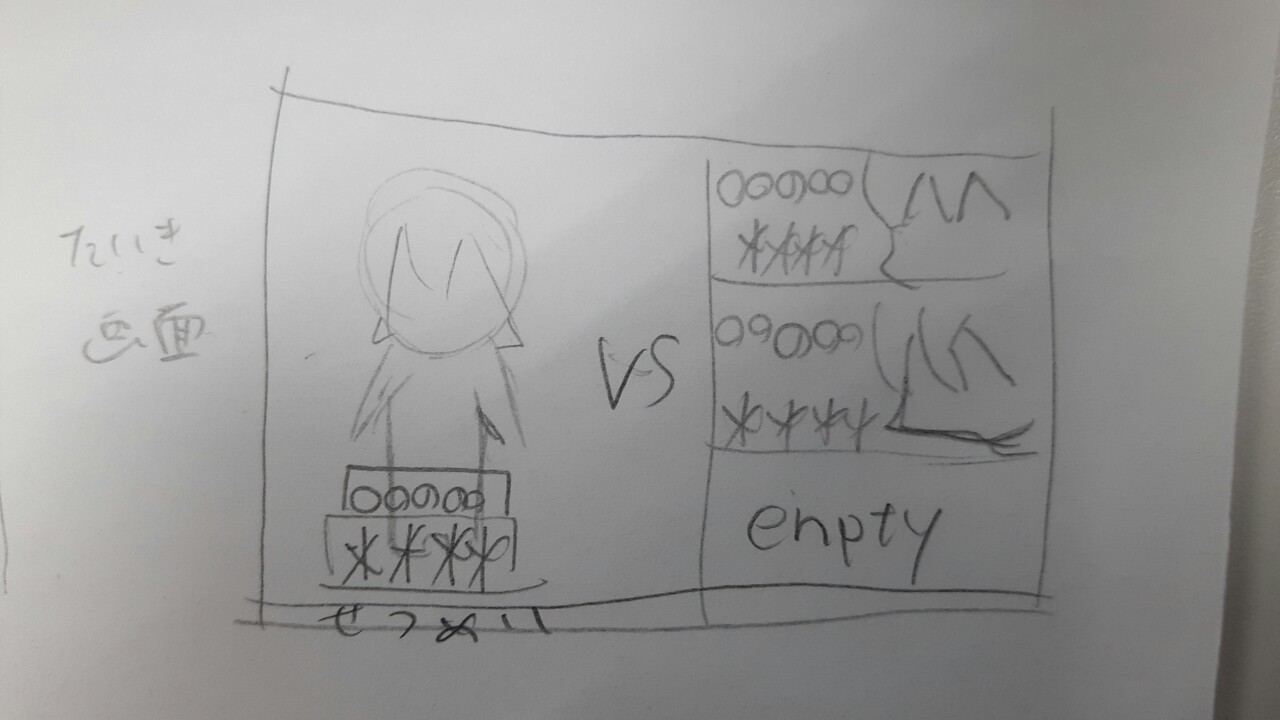 たいき
画面
○○○○○
****
VS
○○○○○
****
○○○○○
****
enpty
せつめい